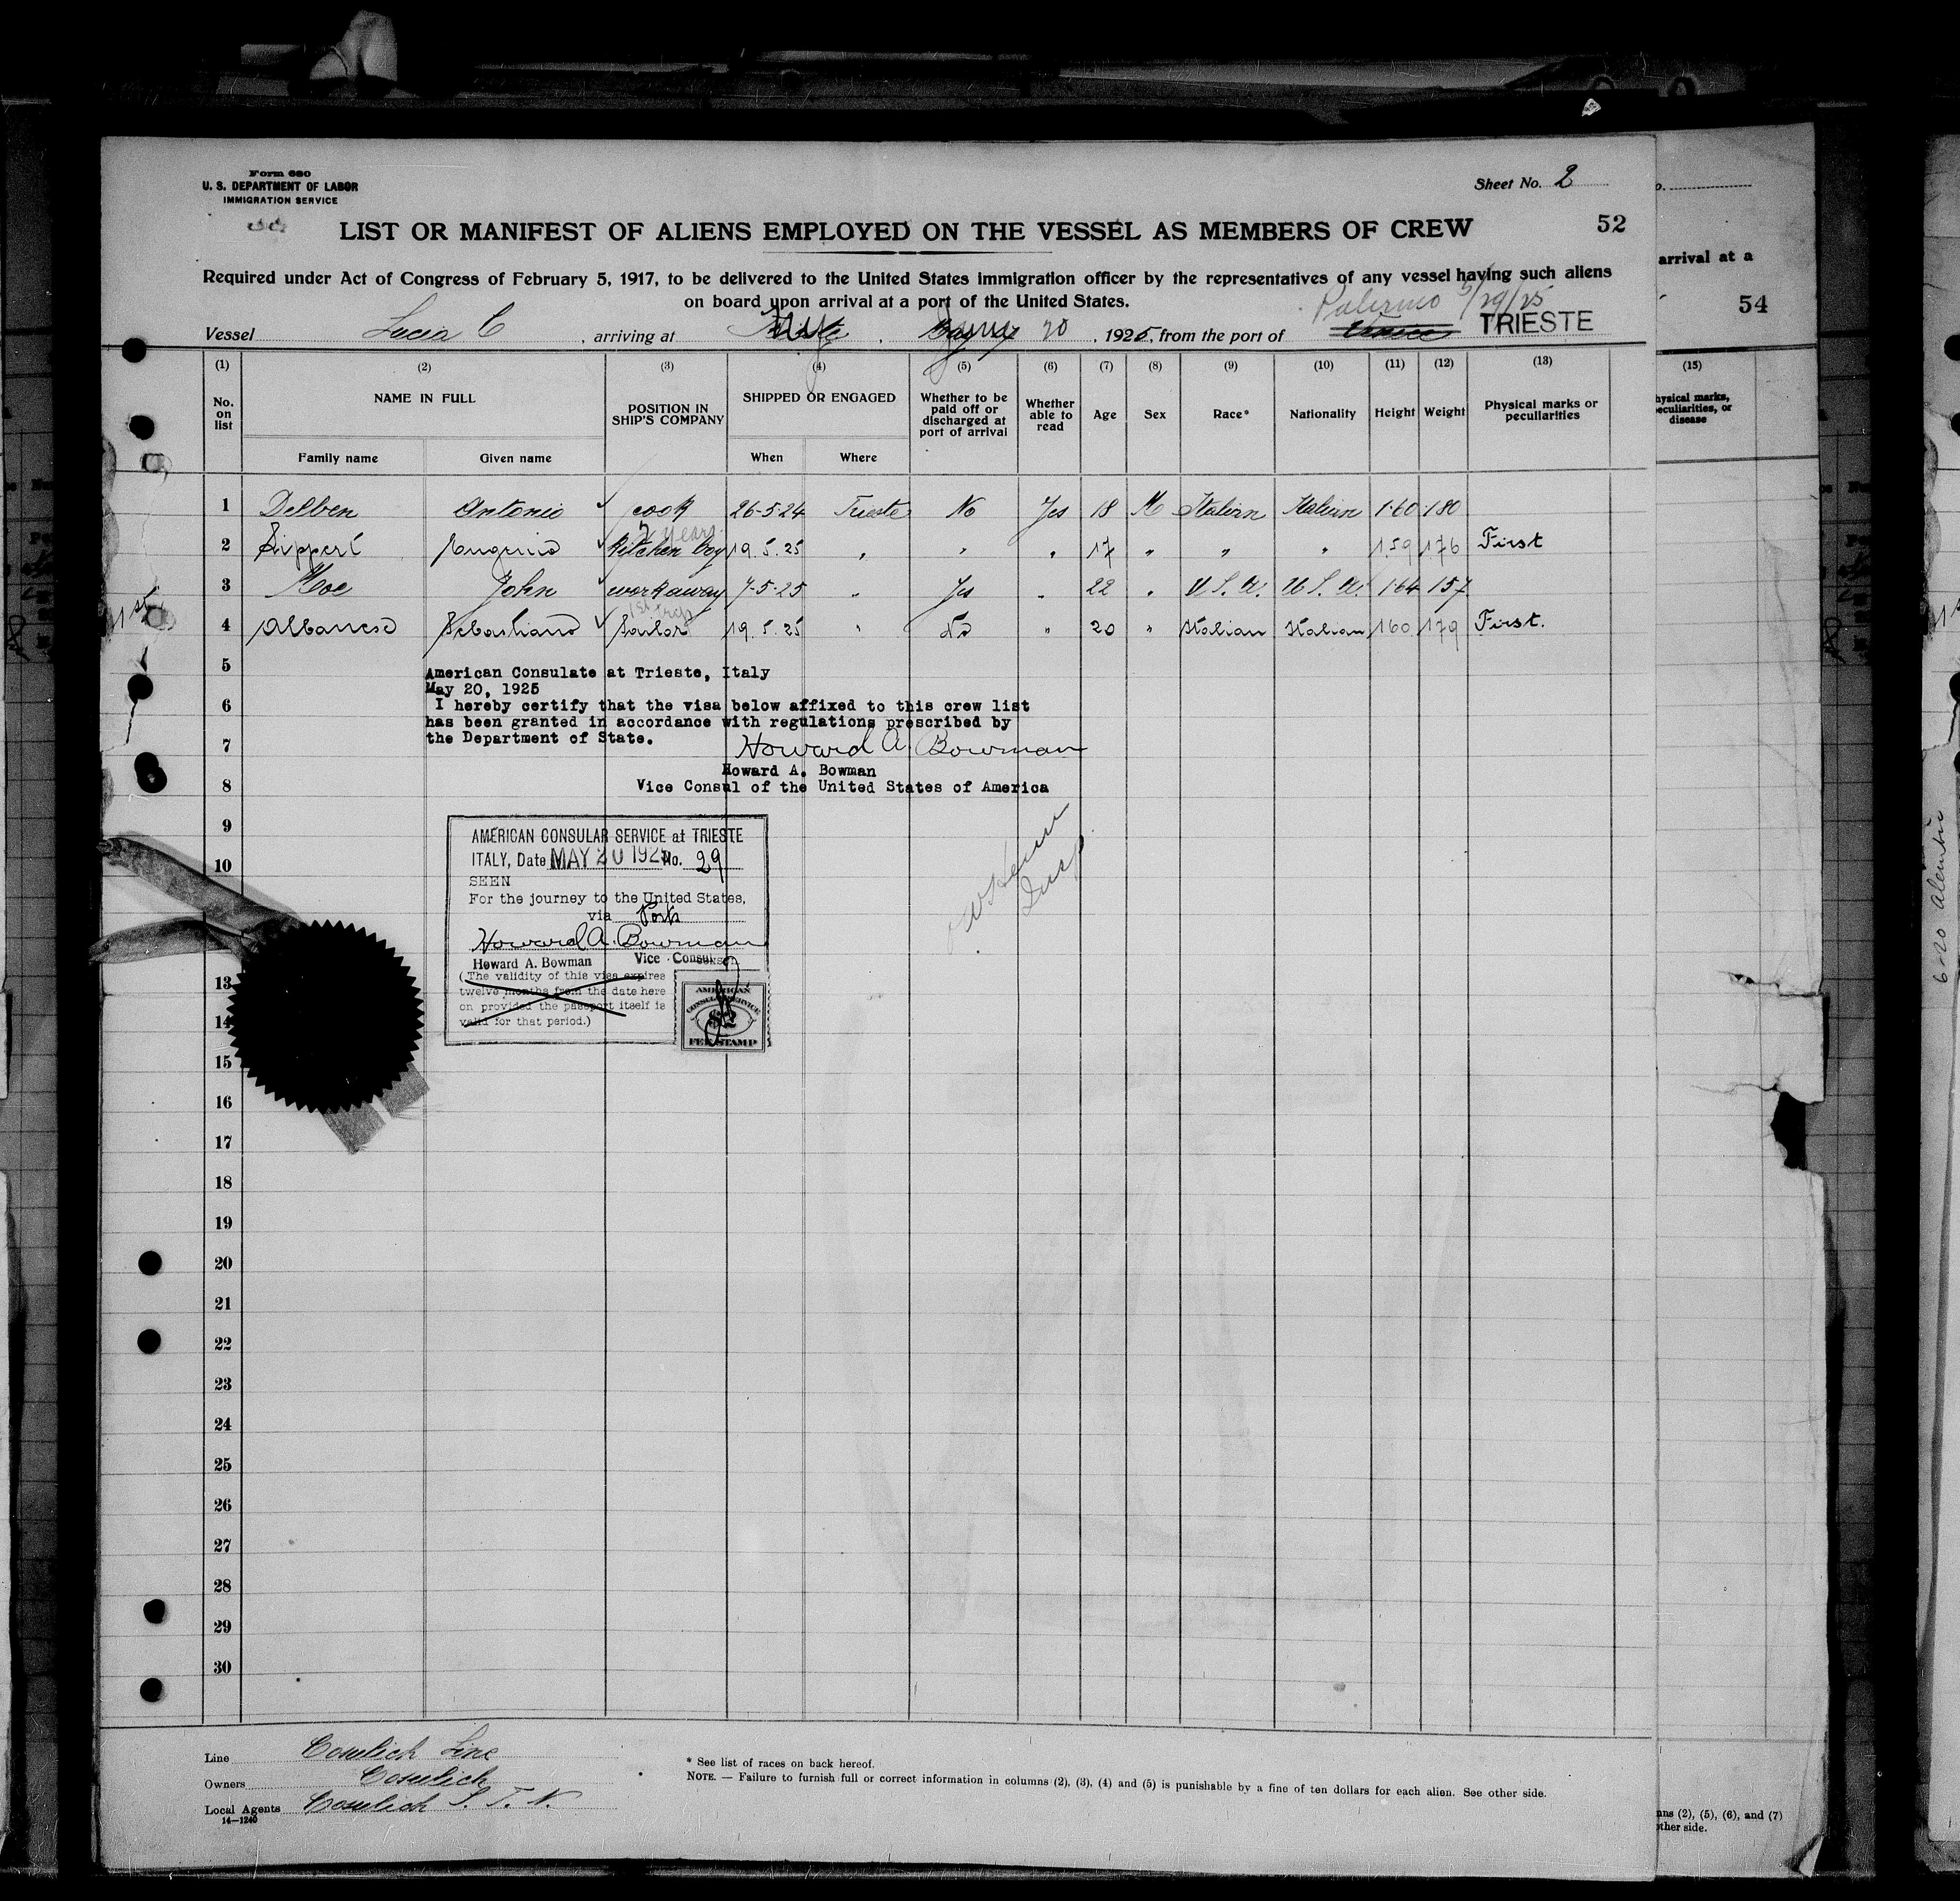 Form 680
U. S. DEPARTMENT OF LABOR
IMMIGRATION SERVICE
Sheet No. 2
52
LIST OR MANIFEST OF ALIENS EMPLOYED ON THE VESSEL AS MEMBERS OF CREW
Required under Act of Congress of February 5, 1917, to be delivered to the United States immigration officer by the representatives of any vessel having such aliens
on board upon arrival at a port of the United States.
Palermo 5/29/25
Vessel Lucia C , arriving at , June 20 , 1925, from the port of TRIESTE
(1) (2) (3) (4) (5) (6) (7) (8) (9) (10) (11) (12) (13)
No. on list NAME IN FULL POSITION IN SHIP'S COMPANY SHIPPED OR ENGAGED Whether to be paid off or discharged at port of arrival Whether able to read Age Sex Race* Nationality Height Weight Physical marks or peculiarities
Family name Given name When Where
1 Delben Antonio ✓ cook 26-5-24 Trieste No Yes 18 M Italian Italian 1.60 180
2 years
2 Lippert Eugenio ✓ Kitchen boy 19.5.25 " " " 17 " " " 1.59 176 First
3 Moe John ✓ workaway 7-5-25 " Yes " 22 " U.S.A. U.S.A. 164 157
1st trip
4 Albanese Sebastiano ✓ Sailor 19.5.25 " No " 20 " Italian Italian 160 179 First.
5
American Consulate at Trieste, Italy
May 20, 1925
6 I hereby certify that the visa below affixed to this crew list
has been granted in accordance with regulations prescribed by
the Department of State.
7 Howard A. Bowman
Howard A. Bowman
8 Vice Consul of the United States of America
9
AMERICAN CONSULAR SERVICE at TRIESTE
ITALY, Date MAY 20 1925 No. 29
10
SEEN
For the journey to the United States,
via
Howard A. Bowman
Howard A. Bowman Vice Consul
(The validity of this visa expires
13
twelve months from the date here
on provided the passport itself is
14
valid for that period.)
AMERICAN
CONSULAR SERVICE
$2
FEE STAMP
Insp
15
16
17
18
19
20
21
22
23
24
25
26
27
28
29
30
Line Cosulich Line
Owners Cosulich
Local Agents Cosulich S. T. N.
14—1240
* See list of races on back hereof.
NOTE. — Failure to furnish full or correct information in columns (2), (3), (4) and (5) is punishable by a fine of ten dollars for each alien. See other side.
arrival at a
54
(15)
hysical marks,
eculiarities, or
disease
ns (2), (5), (6), and (7)
ther side.